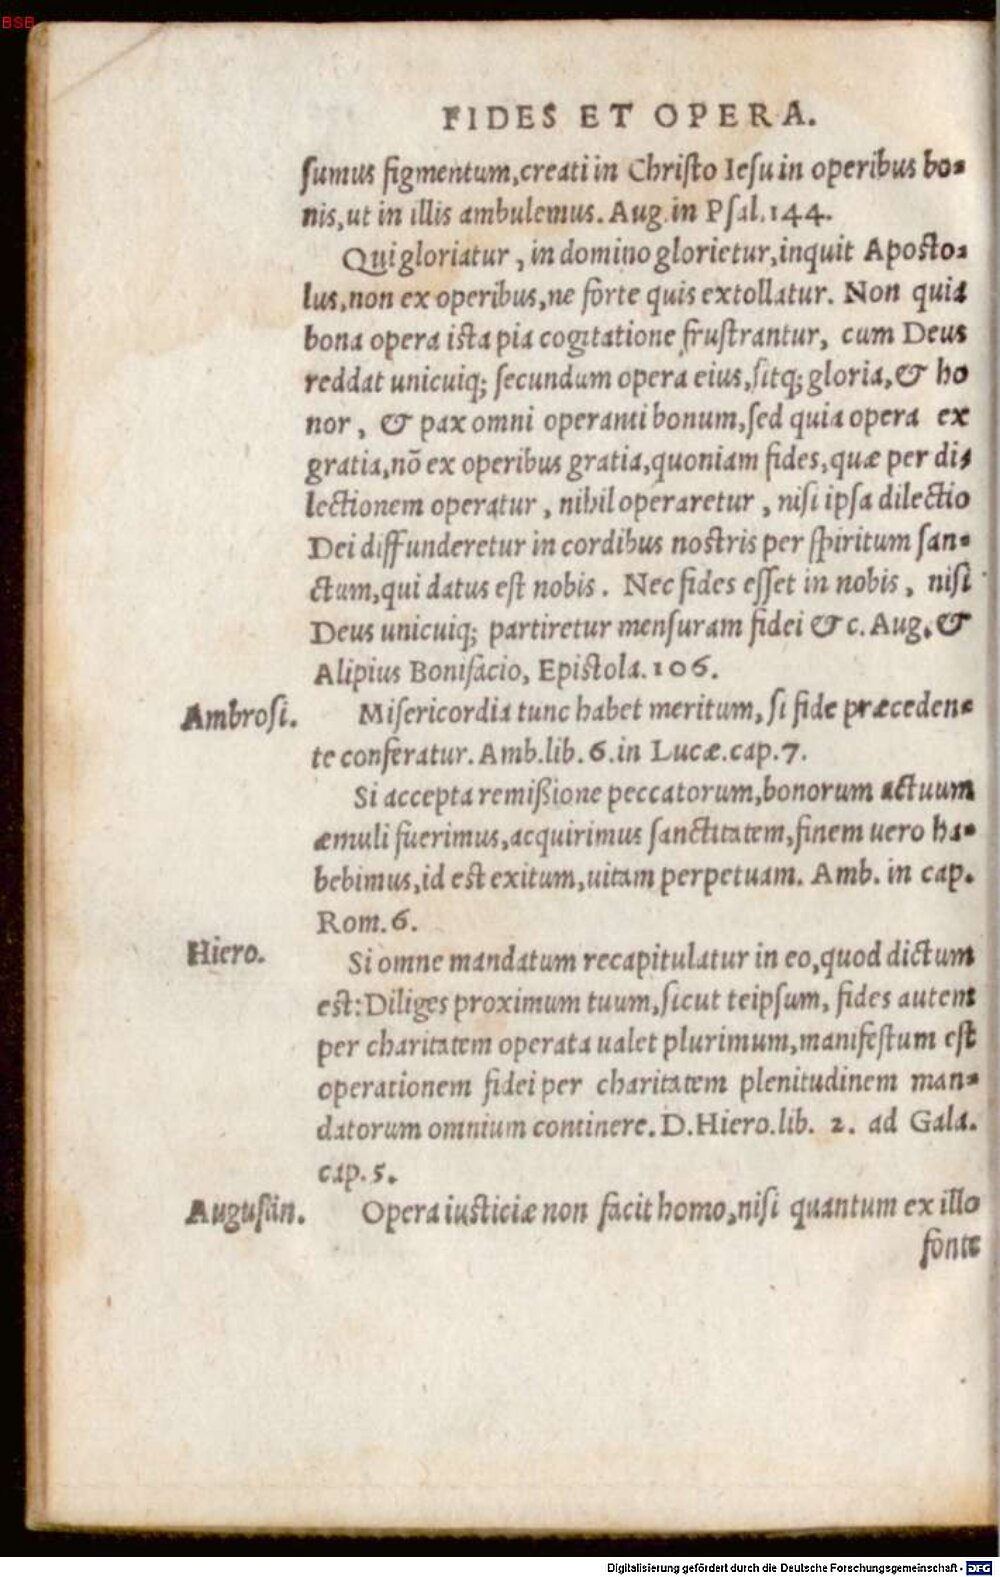 BSB
FIDES ET OPERA.
sumus figmentum,creati in Christo Iesu in operibus bo-
nis,ut in illis ambulemus. Aug.in Psal.144.
Qui gloriatur, in domino glorietur,inquit Aposto-
lus,non ex operibus,ne forte quis extollatur. Non quia
bona opera ista pia cogitatione frustrantur, cum Deus
reddat unicuiq; secundum opera eius,sitq; gloria,& ho
nor, & pax omni operanti bonum,sed quia opera ex
gratia,nō ex operibus gratia,quoniam fides,quæ per di-
lectionem operatur, nihil operaretur, nisi ipsa dilectio
Dei diffunderetur in cordibus nostris per spiritum san-
ctum,qui datus est nobis. Nec fides esset in nobis, nisi
Deus unicuiq; partiretur mensuram fidei &c. Aug. &
Alipius Bonifacio, Epistola.106.
Ambrosi. Misericordia tunc habet meritum, si fide præceden-
te conferatur. Amb.lib.6.in Lucæ.cap.7.
Si accepta remißione peccatorum,bonorum actuum
æmuli fuerimus,acquirimus sanctitatem,finem uero ha-
bebimus,id est exitum,uitam perpetuam. Amb. in cap.
Rom.6.
Hiero. Si omne mandatum recapitulatur in eo,quod dictum
est: Diliges proximum tuum,sicut teipsum, fides autem
per charitatem operata ualet plurimum,manifestum est
operationem fidei per charitatem plenitudinem man-
datorum omnium continere. D.Hiero.lib. 2. ad Gala.
cap.5.
Augustin. Opera iusticiæ non facit homo,nisi quantum ex illo
fonte
Digitalisierung gefördert durch die Deutsche Forschungsgemeinschaft - DFG